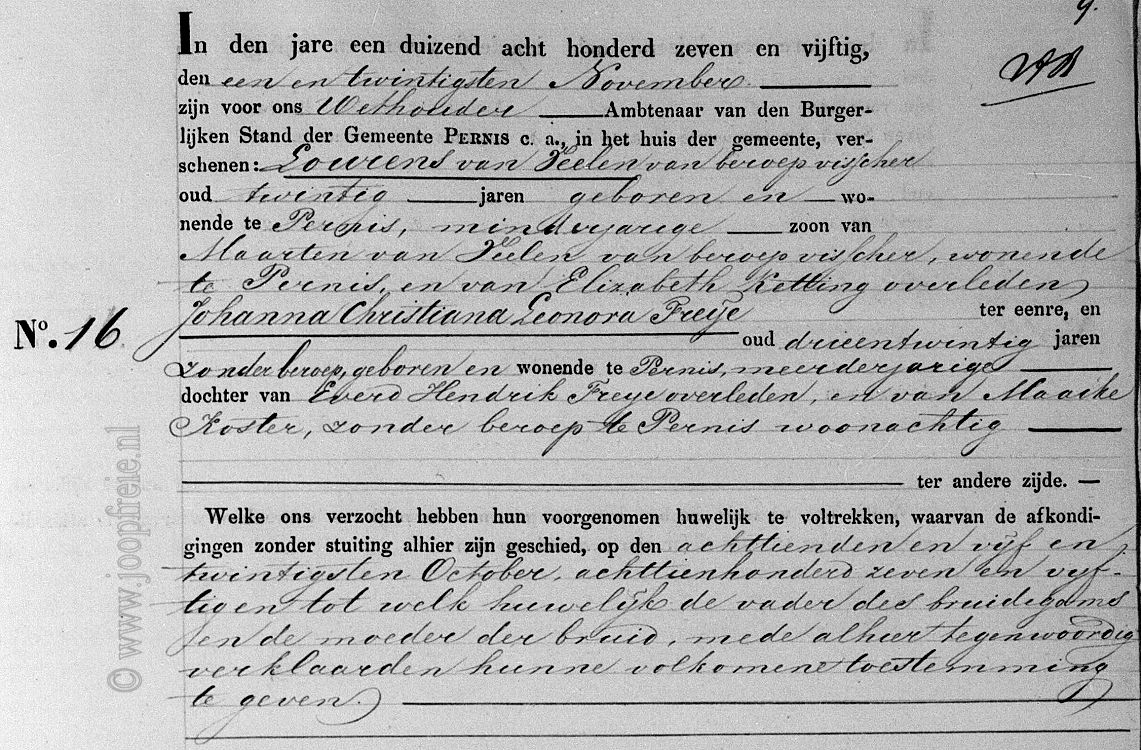 9.
In den jare een duizend acht honderd zeven en vijftig,
den een en twintigsten November
zijn voor ons Wethouder Ambtenaar van den Burger-
lijken Stand der Gemeente PERNIS c. a., in het huis der gemeente, ver-
schenen: Lourens van Veelen van beroep visscher
oud twintig jaren geboren en wo-
nende te Pernis, minderjarige zoon van
Maarten van Veelen van beroep visscher, wonende
te Pernis, en van Elizabeth Ketting overleden
Johanna Christiana Leonora Freije ter eenre, en
No. 16
oud drieentwintig jaren
zonder beroep, geboren en wonende te Pernis, meerderjarige
dochter van Everd Hendrik Freye overleden, en van Maaike
Koster, zonder beroep te Pernis woonachtig
ter andere zijde. —
Welke ons verzocht hebben hun voorgenomen huwelijk te voltrekken, waarvan de afkondi-
gingen zonder stuiting alhier zijn geschied, op den achttienden en vijf en
twintigsten October, achttienhonderd zeven en vijf-
tigen tot welk huwelijk de vader des bruidegoms
en de moeder der bruid, mede alhier tegenwoordig
verklaarden hunne volkomene toestemming
te geven.
© www.joopfreie.nl